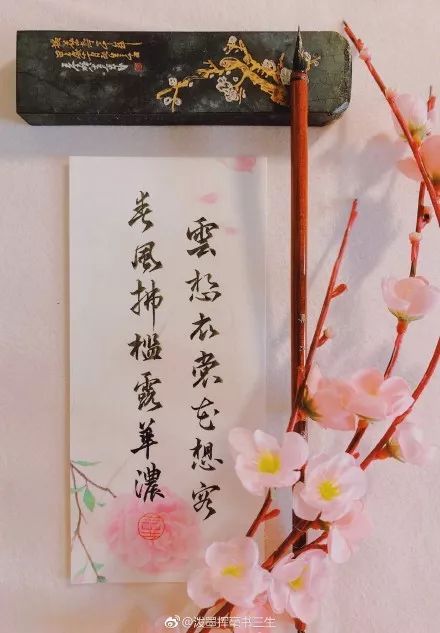 雲想衣裳花想容
春風拂檻露華濃
@泼墨挥毫书三生